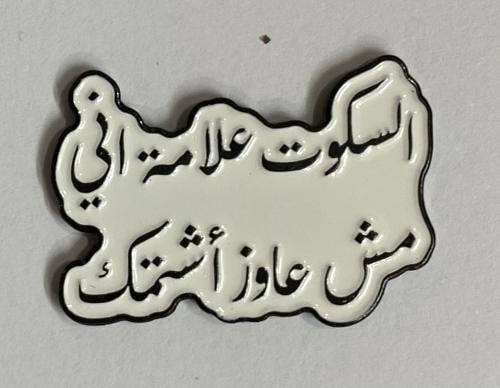 السكوت علامة اني
مش عاوز أشتمك